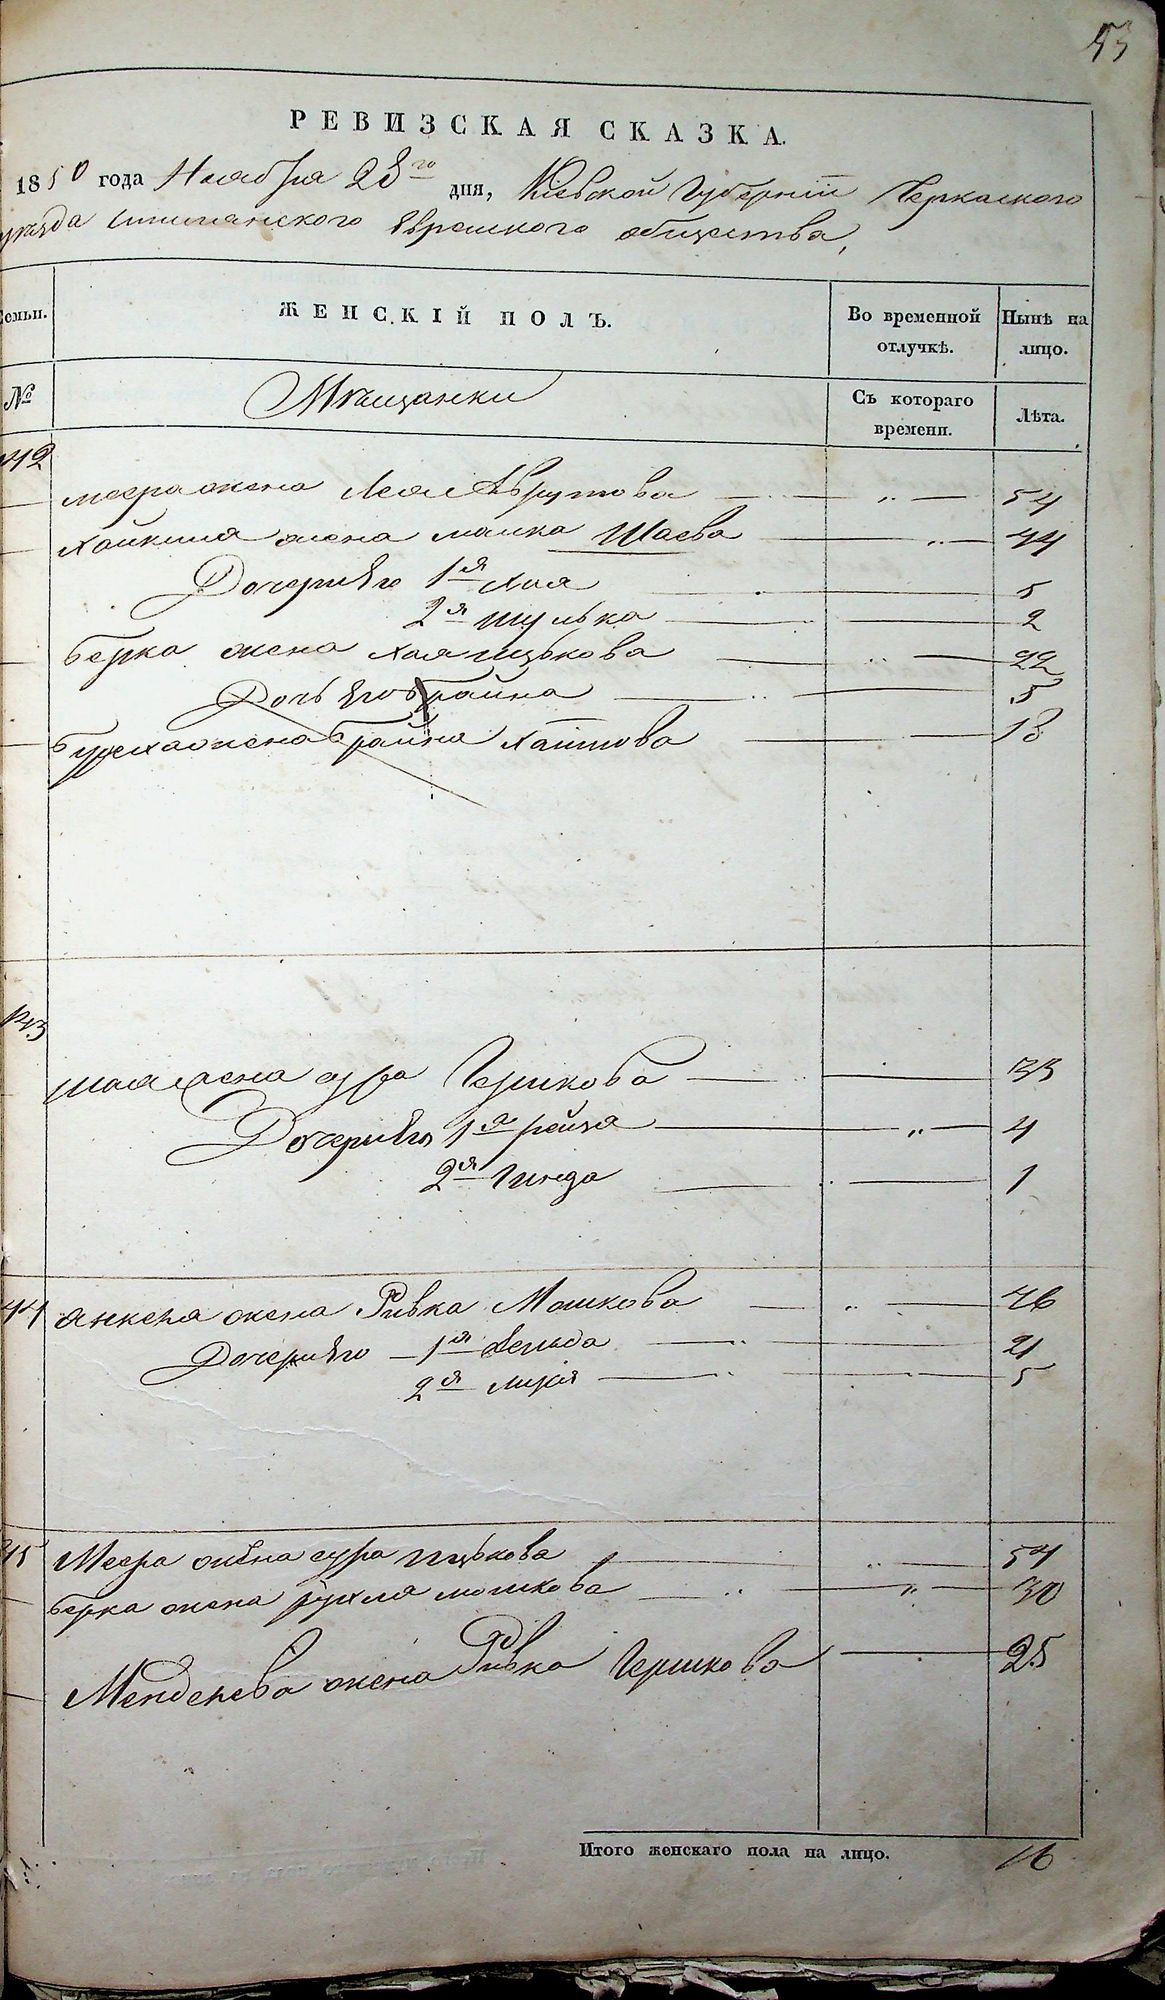 53
РЕВИЗСКАЯ СКАЗКА.
1850 года Ноября 28го дня, Кіевской Губерніи Черкаского
уезда Еврейского общества,
Семьи. ЖЕНСКІЙ ПОЛЪ. Во временной отлучкѣ. Нынѣ на лицо.
№ Мѣщанки Съ котораго времени. Лѣта.
142
жена Лея 54
жена малка Шаева 44
Дочери его 1я Хая 5
2я шулька 2
Берка жена Хая ицькова 22
Дочь его брайна 5
жена брайна Хаимова 18
143
шаи жена сура Гершкова 33
Дочери его 1я рейза 4
2я Гинда 1
44 Анкеля жена Ривка Мошкова 46
Дочери его 1я 21
2я 5
45 Меера жена сура ицькова 54
Берка жена рухля мошкова 30
Менделева жена Ривка Гершкова 25
Итого женскаго пола на лицо. 16